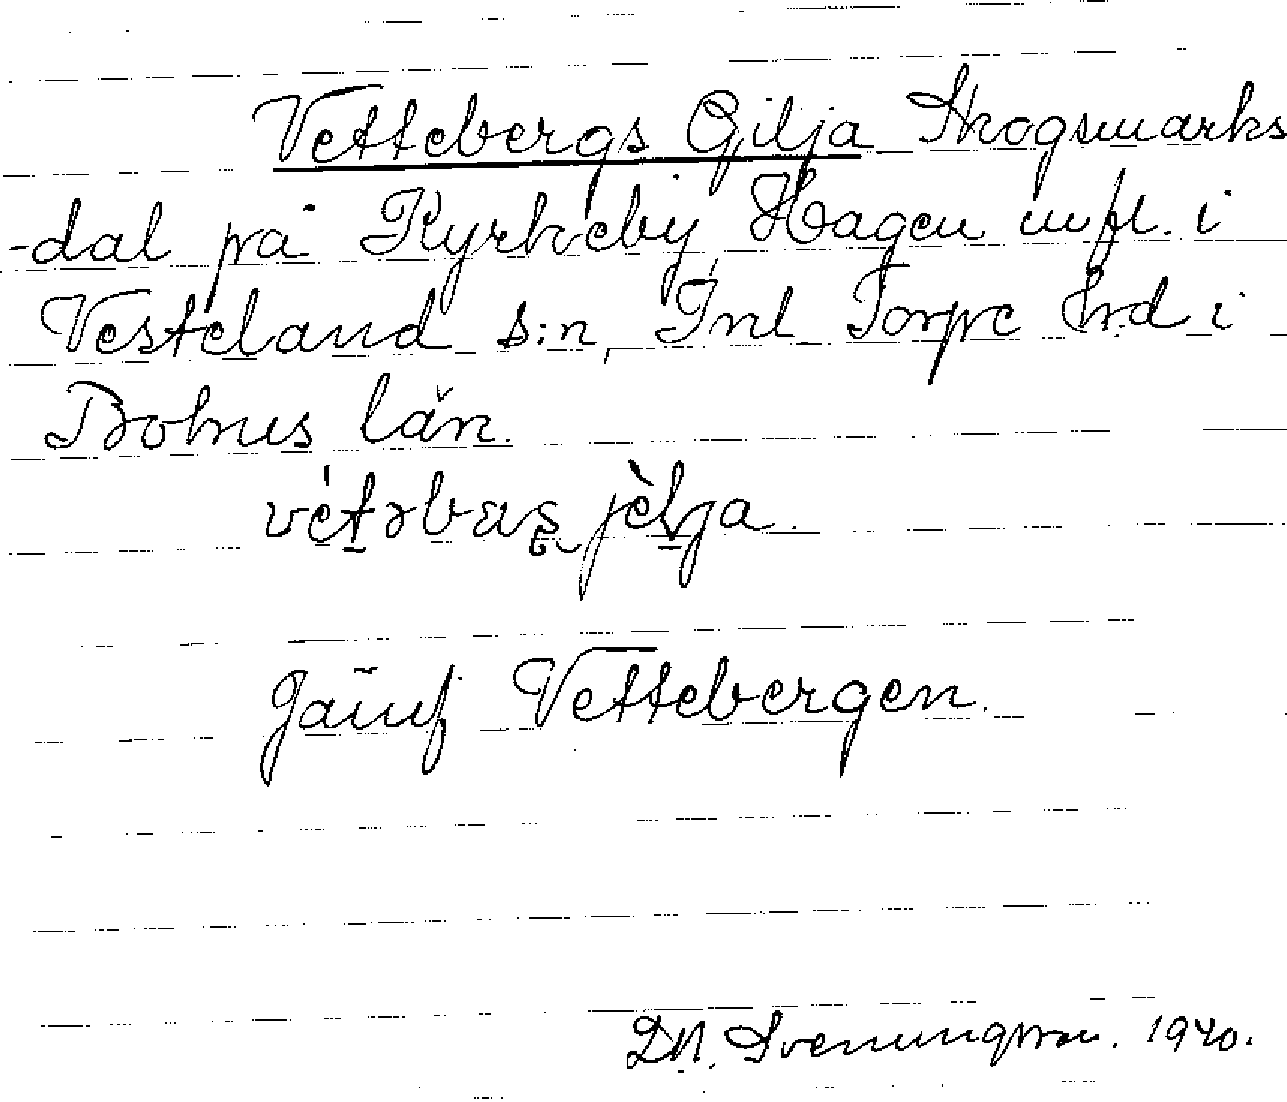 Vettebergs Gilja Skogsmarks
-dal på Kyrkeby, Hagen m fl. i
Vesteland s:n, Inl Torpe hrd i
Bohus län.
Jämf Vettebergen.
D.N. Svenungsson. 1940.